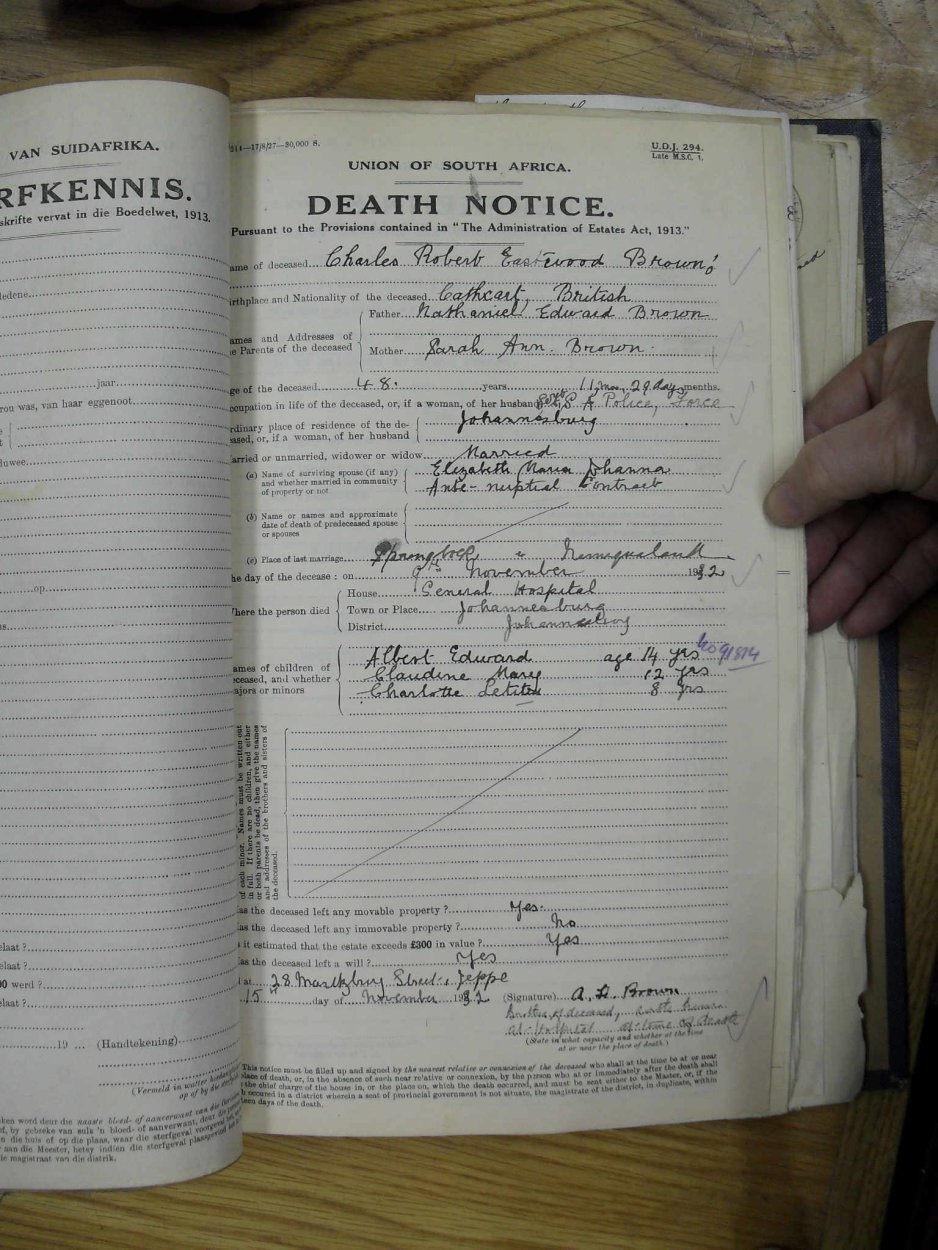 VAN SUIDAFRIKA.
RFKENNIS.
skrifte vervat in die Boedelwet, 1913.
ledene
jaar
rou was, van haar eggenoot
duwee
op
elaat ?
elaat ?
00 werd ?
elaat ?
19 ... (Handtekening)
(Vermeld in watter
op of by die
ken word deur die naaste bloed- of aanverwant van die
of, by gebreke van sulk 'n bloed- of aanverwant, deur die
n die huis of op die plaas, waar die sterfgeval voorgeval
aan die Meester, hetsy indien die sterfgeval plaasgevind
ie magistraat van die distrik.
—17/8/27—30,000 S.
U.D.J. 294.
Late M.S.C. 1.
UNION OF SOUTH AFRICA.
DEATH NOTICE.
Pursuant to the Provisions contained in "The Administration of Estates Act, 1913."
ame of deceased Charles Robert Eastwood Brown
irthplace and Nationality of the deceased Cathcart, British
ames and Addresses of
e Parents of the deceased
Father Nathaniel Edward Brown
Mother Sarah Ann Brown
ge of the deceased 48. years 11 mos. 29 days months.
ccupation in life of the deceased, or, if a woman, of her husband S A Police, Force
rdinary place of residence of the de-
ased, or, if a woman, of her husband
Johannesburg
arried or unmarried, widower or widow Married
(a) Name of surviving spouse (if any)
and whether married in community
of property or not
Elizabeth Maria Johanna
Ante-nuptial Contract
(b) Name or names and approximate
date of death of predeceased spouse
or spouses
(c) Place of last marriage Springbok Namaqualand
he day of the decease : on 9th November 1932
here the person died
House General Hospital
Town or Place Johannesburg
District Johannesburg
ames of children of
eceased, and whether
ajors or minors
Albert Edward age 14 yrs
Claudine Mary 12 yrs
Charlotte Letitia 8 yrs
of each minor. Names must be written out
in full. If there are no children, and either
or both parents be dead, then give the names
and addresses of the brothers and sisters of
the deceased.
as the deceased left any movable property ? Yes.
as the deceased left any immovable property ? No
it estimated that the estate exceeds £300 in value ? Yes
as the deceased left a will ? Yes
at 28 Street, Jeppe
15th day of November 1932 (Signature) A. D. Brown
Brother of deceased,
at hospital at time of death
(State in what capacity and whether at the time
at or near the place of death.)
This notice must be filled up and signed by the nearest relative or connexion of the deceased who shall at the time be at or near
place of death; or, in the absence of such near relative or connexion, by the person who at or immediately after the death shall
the chief charge of the house in, or the place on, which the death occurred, and must be sent either to the Master, or, if the
h occurred in a district wherein a seat of provincial government is not situate, the magistrate of the district, in duplicate, within
een days of the death.